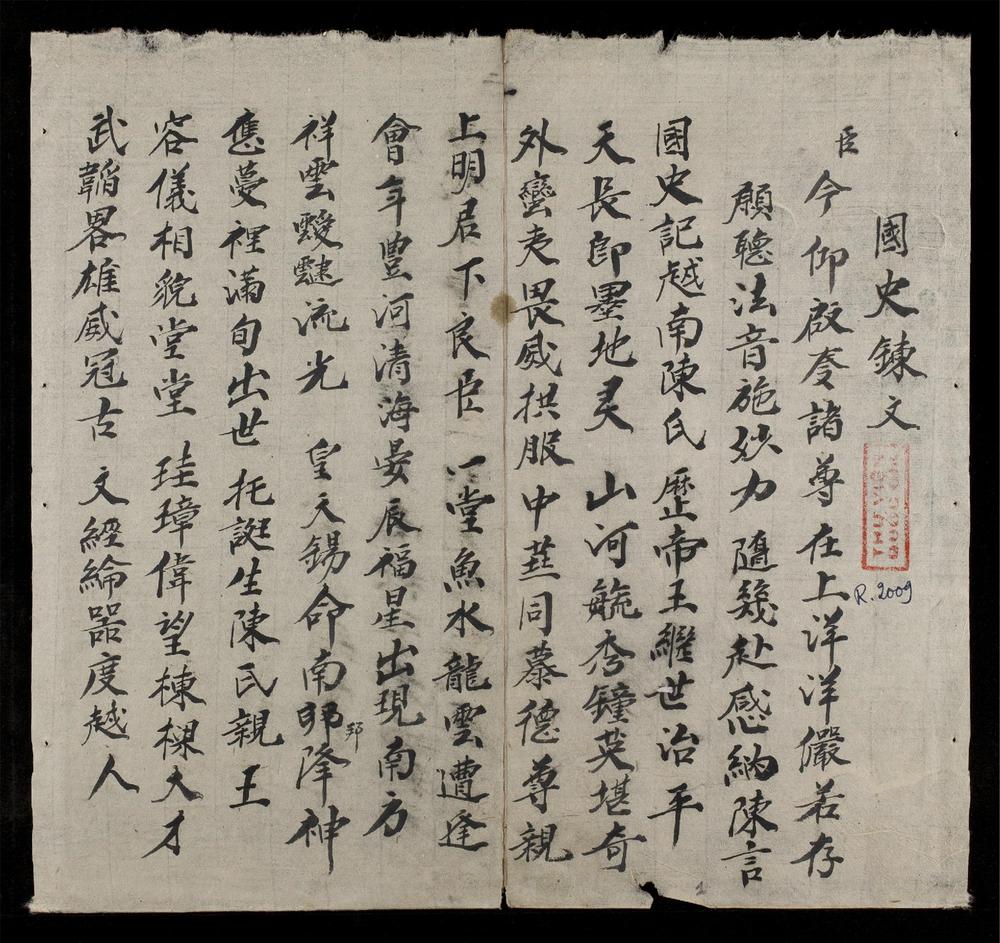 國史鍊文
臣
今仰啟夌諸尊在上洋洋儼若存
願聽法音施妙力 隨幾赴感納陳言
國史記越南陳氏 歷帝王繼世治平
天長卽墨地灵 山河毓秀鐘英堪奇
外蠻夷畏威拱服 中莚同慕德尊親
上明君下良臣 一堂魚水龍雲遭逢
會年豊河清海晏辰福星出現南方
祥雲靉靆流光 皇天錫命南邦降神
邦
應夢裡滿旬出世 托誕生陳氏親王
容儀相貌堂堂 珪璋偉望棟樑大才
武韜畧雄威冠古 文經綸器度越人
THƯ VIỆN
QUỐC GIA
R.2009